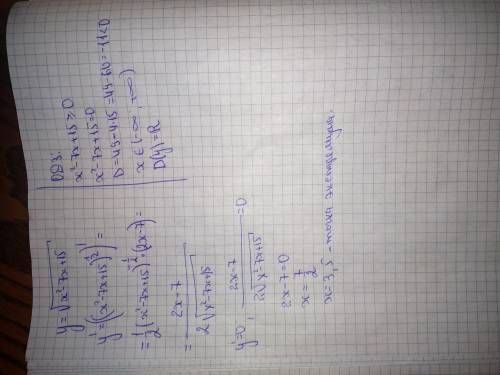 y=√(x²-7x+15)
y'=((x²-7x+15)^(1/2))'=
=1/2(x²-7x+15)^(-1/2)·(2x-7)=
=(2x-7)/(2√(x²-7x+15))
y'=0, (2x-7)/(2√(x²-7x+15))=0
2x-7=0
x=7/2
x=3,5 - точка экстремума.
ОДЗ:
x²-7x+15≥0
x²-7x+15=0
D=49-4·15=49-60=-11<0
x∈(-∞;+∞)
D(y)=R